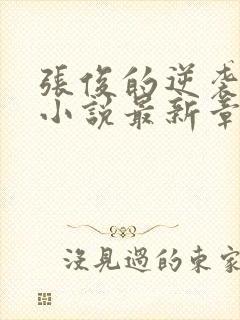 張俊的逆袭
小説最新章
沒見過的東家